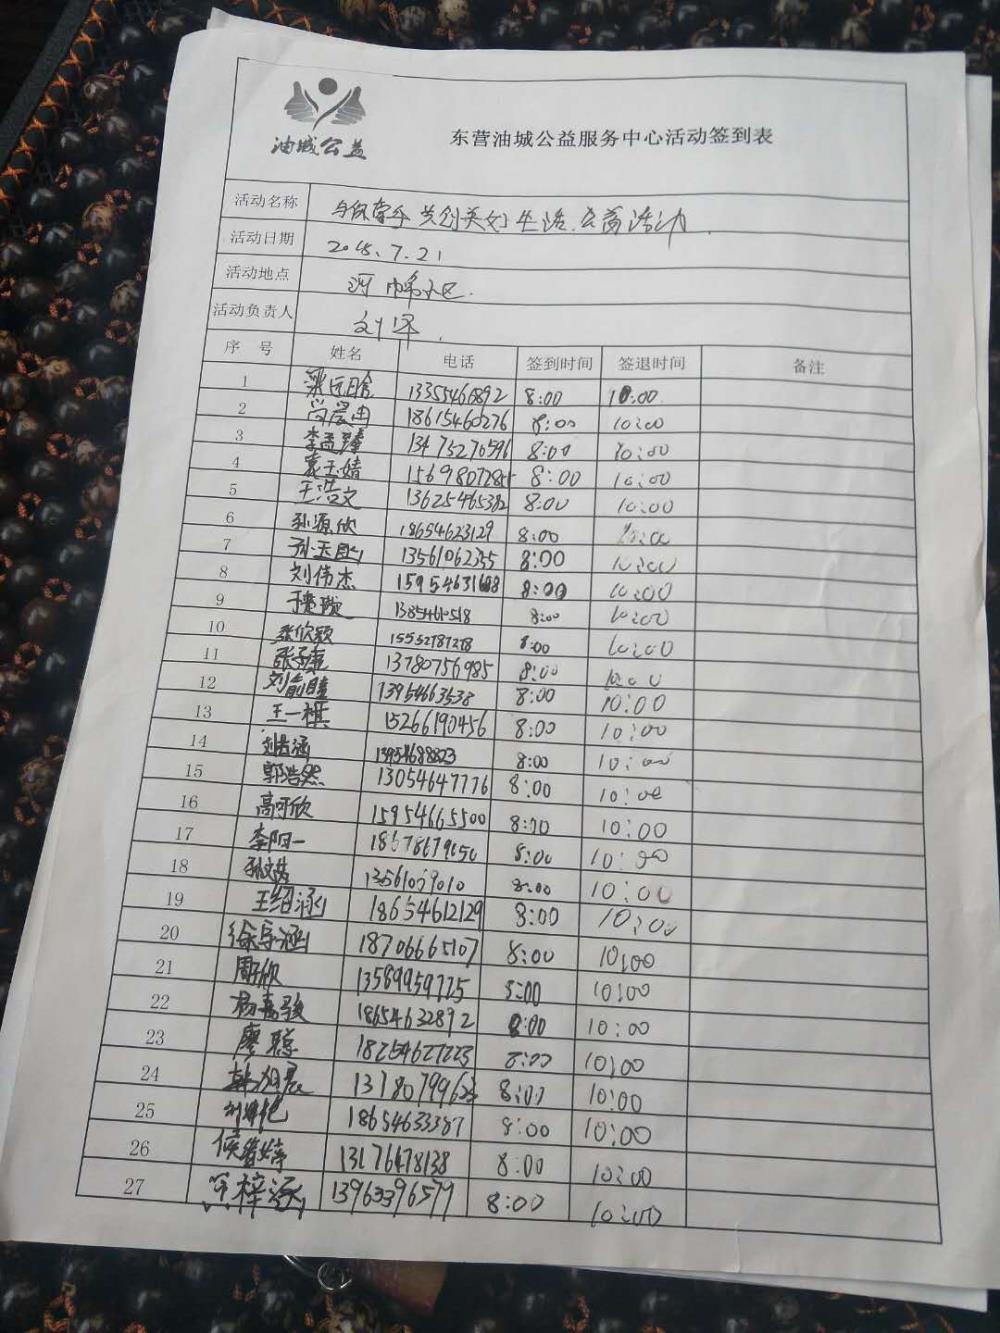 油城公益
东营油城公益服务中心活动签到表
活动名称 与你牵手 共创美好生活.公益活动.
活动日期 2018.7.21
活动地点
活动负责人 刘泽.
序 号 姓名 电话 签到时间 签退时间 备注
1 8:00 10:00
2 18615460276 8:00 10:00
3 李孟臻 13475270596 8:00 10:00
4 袁玉婧 1569807285 8:00 10:00
5 王浩文 13625465382 8:00 10:00
6 孙源欣 18654623129 8:00 10:00
7 13561062355 8:00 10:00
8 刘伟杰 8:00 10:00
9 8:00 10:00
10 张欣颖 15552787278 8:00 10:00
11 张子康 13780756985 8:00 10:00
12 13954663538 8:00 10:00
13 王一棋 15266190456 8:00 10:00
14 13954688823 8:00 10:00
15 郭浩然 13054647776 8:00 10:00
16 高可欣 15954665500 8:00 10:00
17 李阳一 8:00 10:00
18 8:00 10:00
19 王绍涵 18654612129 8:00 10:00
20 徐子涵 18706665107 8:00 10:00
21 周欣 13589959775 8:00 10:00
22 杨嘉骏 18654632892 8:00 10:00
23 廖聪 18254627223 8:00 10:00
24 8:00 10:00
25 18654633387 8:00 10:00
26 13176478138 8:00 10:00
27 梓涵 13963396579 8:00 10:00